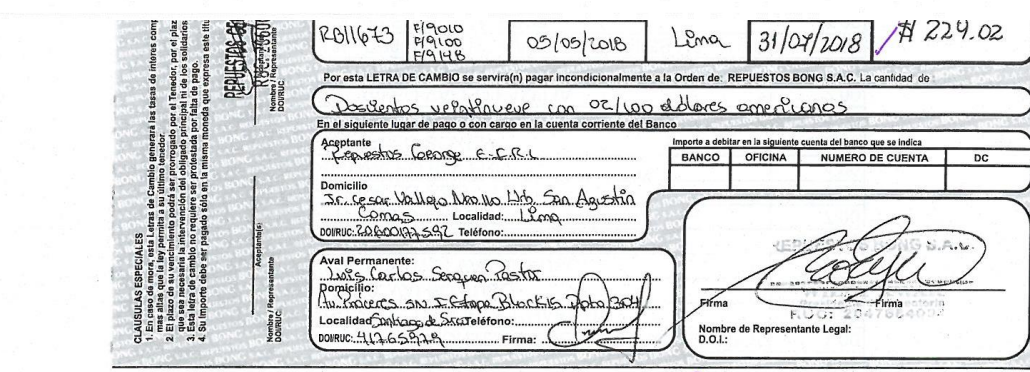 CLAUSULAS ESPECIALES
1. En caso de mora, esta Letras de Cambio generará las tasas de interes comp
mas altas que la ley permita a su último tenedor.
2. El plazo de su vencimiento podrá ser prorrogado por el Tenedor, por el plaz
que sea necesaria la intervención del obligado principal ni de los solidarios
3. Esta letra de cambio no requiere ser protestada por falta de pago.
4. Su importe debe ser pagado sólo en la misma moneda que expresa este títu
Aceptante(s)
Nombre / Representante
DOI/RUC:
Nombre / Representante
DOI/RUC:
RB11673
F/9010
F/9100
F/9148
05/05/2018
Lima
31/07/2018
$ 229.02
Por esta LETRA DE CAMBIO se servira(n) pagar incondicionalmente a la Orden de. REPUESTOS BONG S.A.C. La cantidad de
Doscientos veintinueve con 02/100 dólares americanos
En el siguiente lugar de pago o con cargo en la cuenta corriente del Banco
Aceptante
Repuestos George E.I.R.L
Domicilio
Jr. Cesar Vallejo Nro. 110 Urb. San Agustin
Comas Localidad: Lima
DOI/RUC: 20600177592 Teléfono:
Importe a debitar en la siguiente cuenta del banco que se indica
BANCO OFICINA NUMERO DE CUENTA DC
Aval Permanente:
Luis Carlos Serquen Pastor
Domicilio:
Av. Próceres SN. I Etapa Block 15 Dpto 304
Localidad Santiago de Teléfono:
DOI/RUC: 41765979 Firma:
REPUESTOS BONG S.A.C.
Firma
Firma
Nombre de Representante Legal:
D.O.I.: